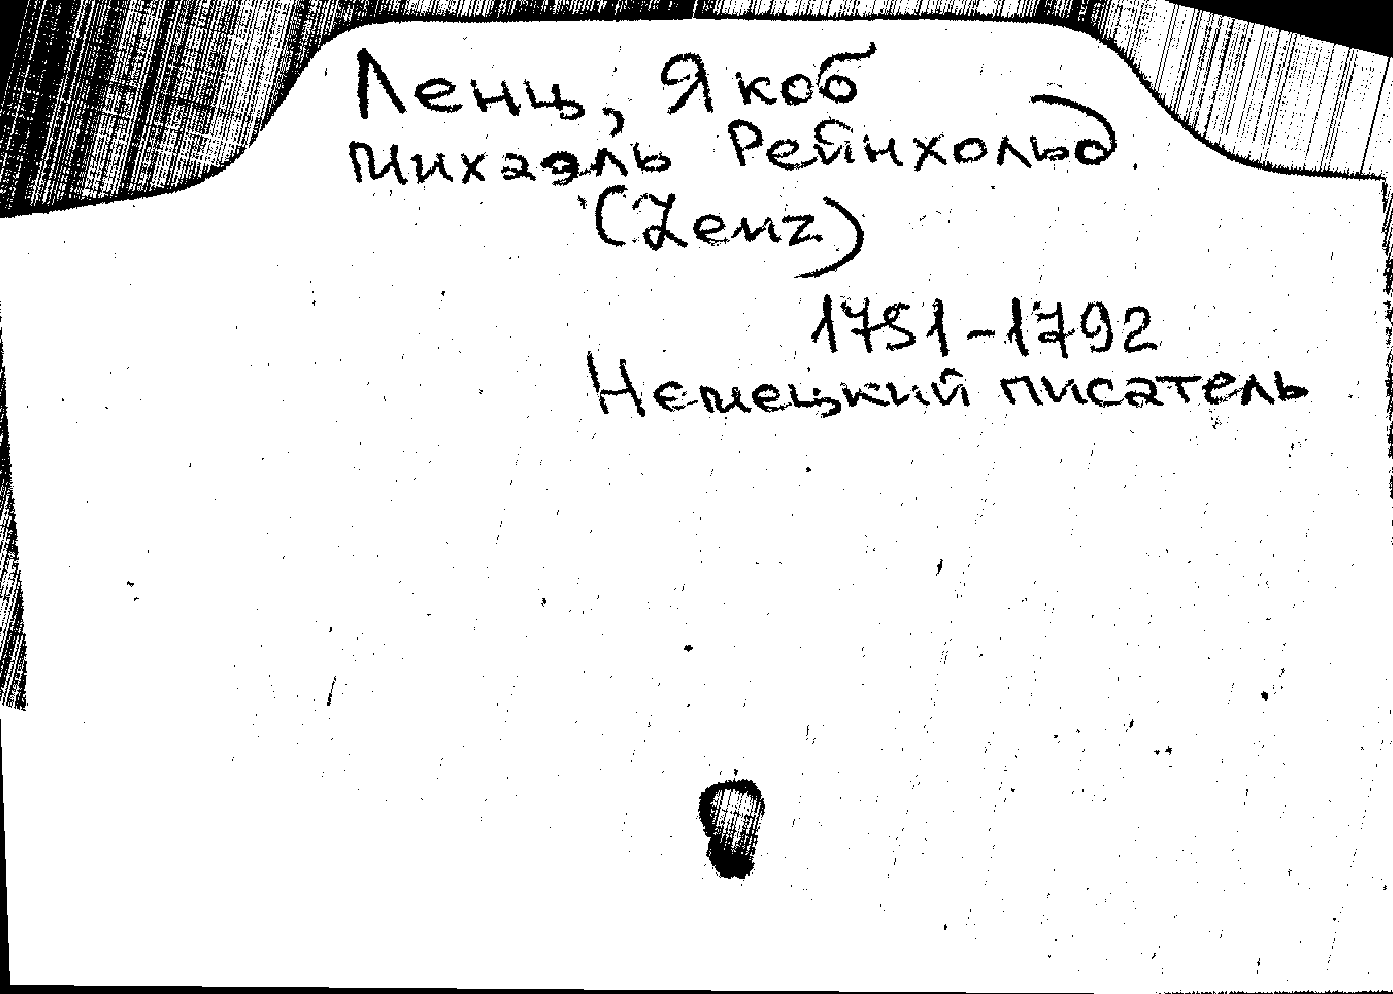 Ленц, Якоб
Михаэль Рейнхольд
(Lenz)
1751-1792
Немецкий писатель